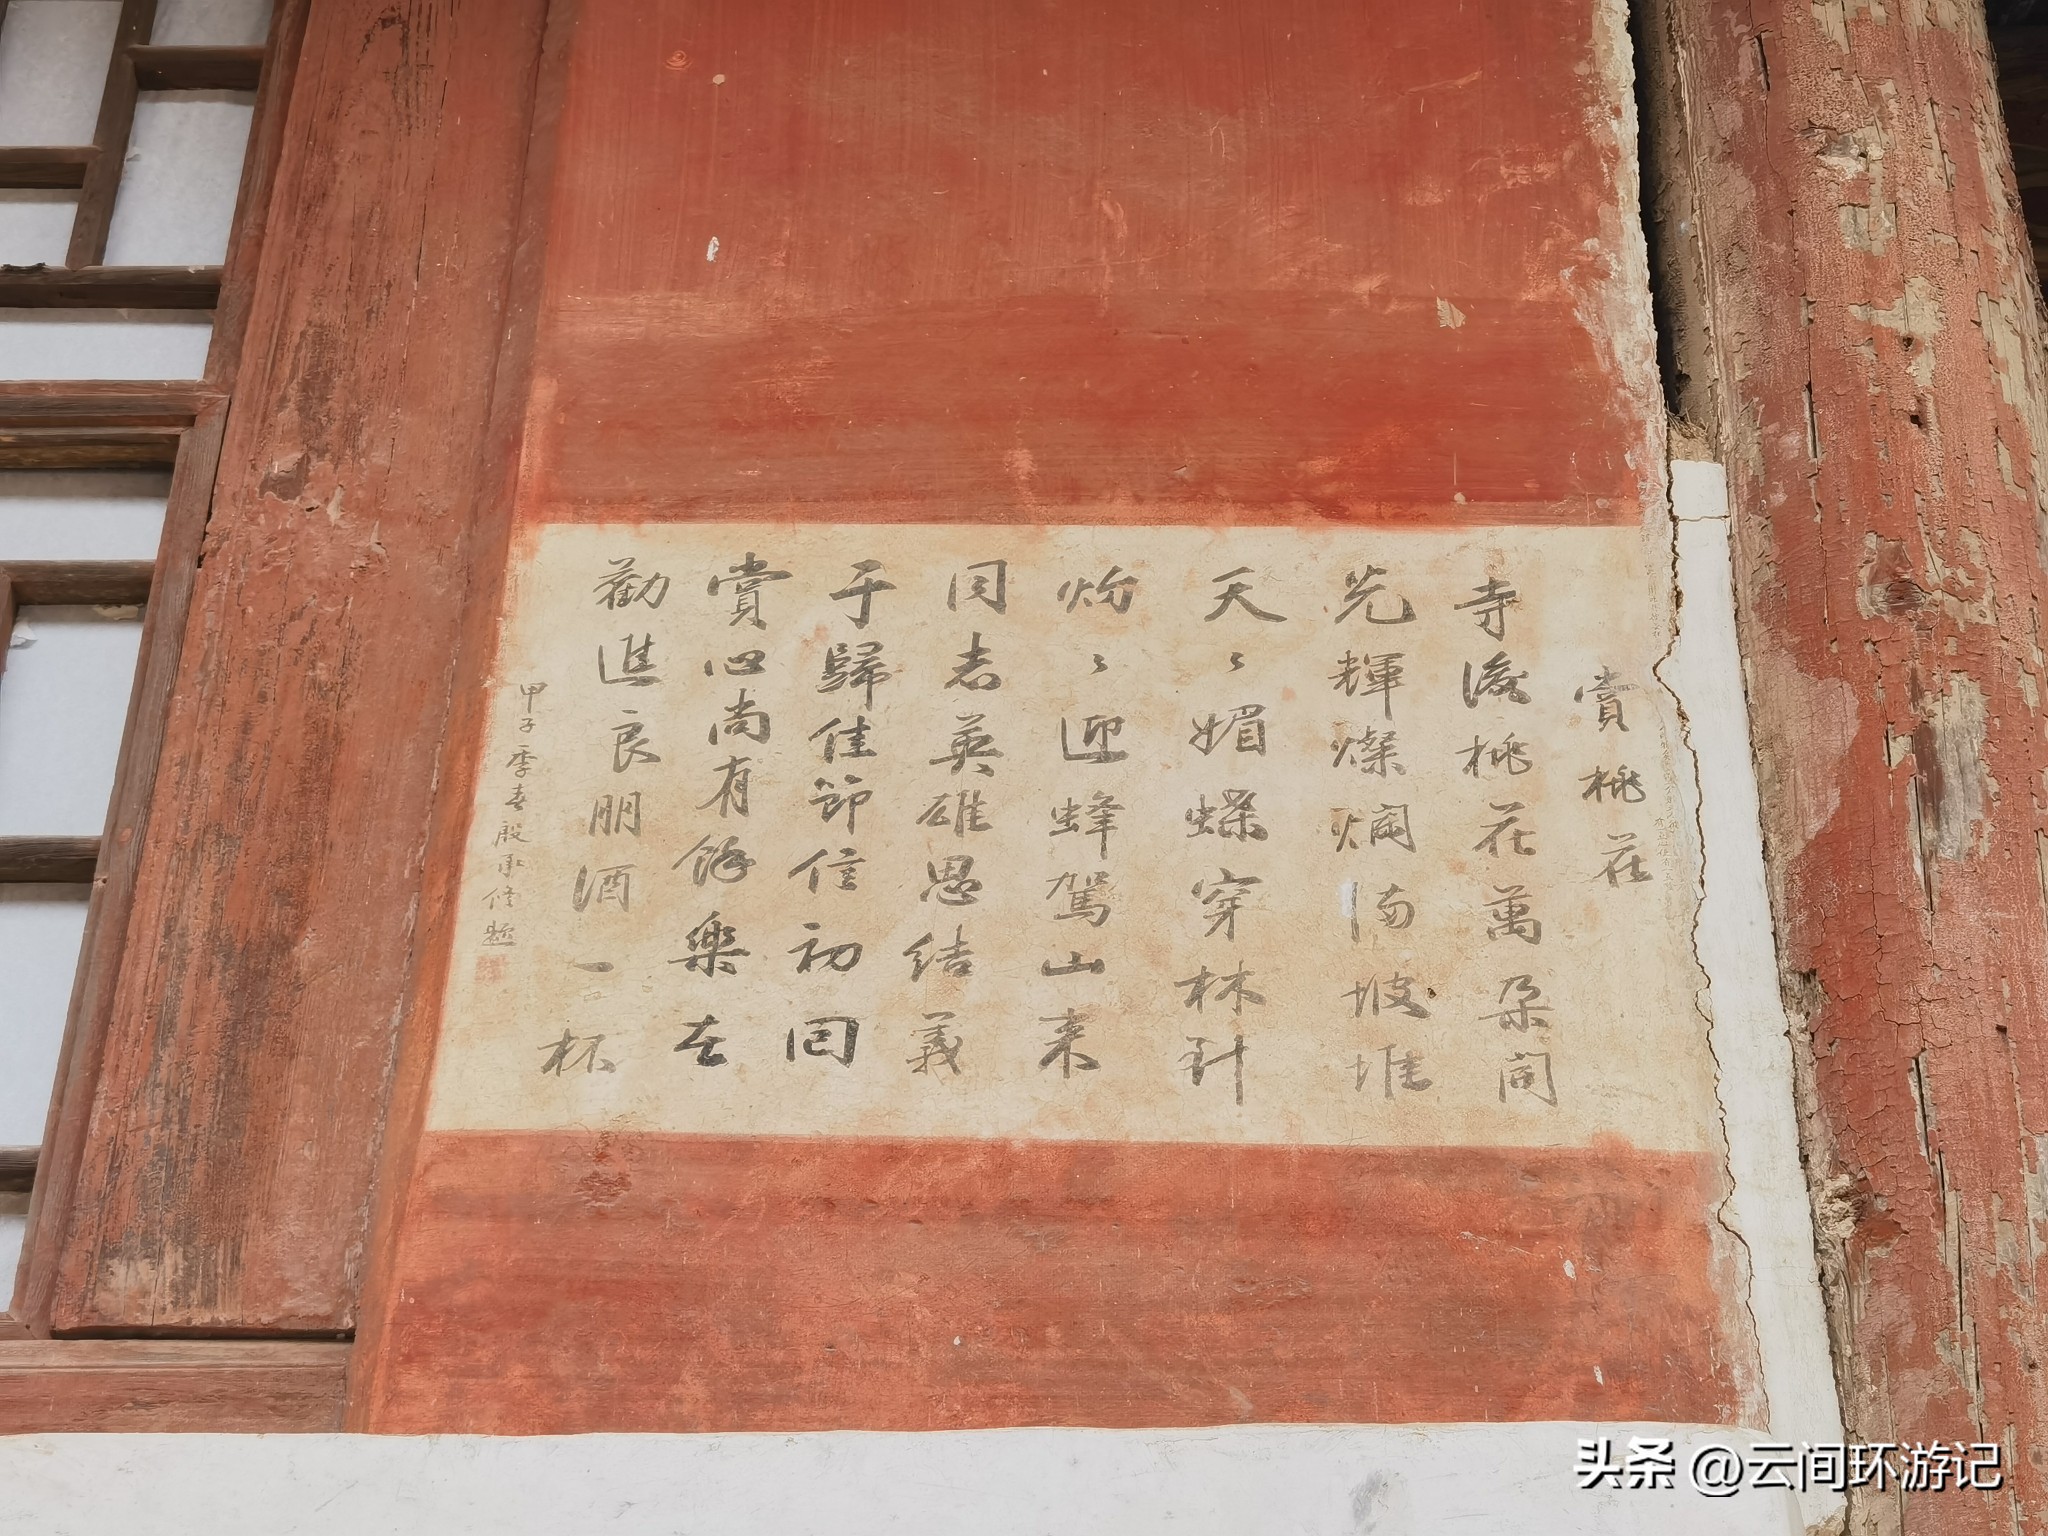 賞桃花
寺後桃花萬朵開
光輝燦爛滿坡堆
天〻媚蝶穿林到
灼〻迎蜂駕山來
同志英雄思結義
于歸佳節信初回
賞心尚有餘樂在
勸進良朋酒一杯
甲子季春殷承修題
头条 @云间环游记